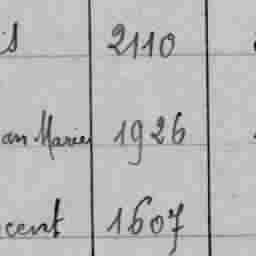 is 2110
an Marie 1926
cent 1607